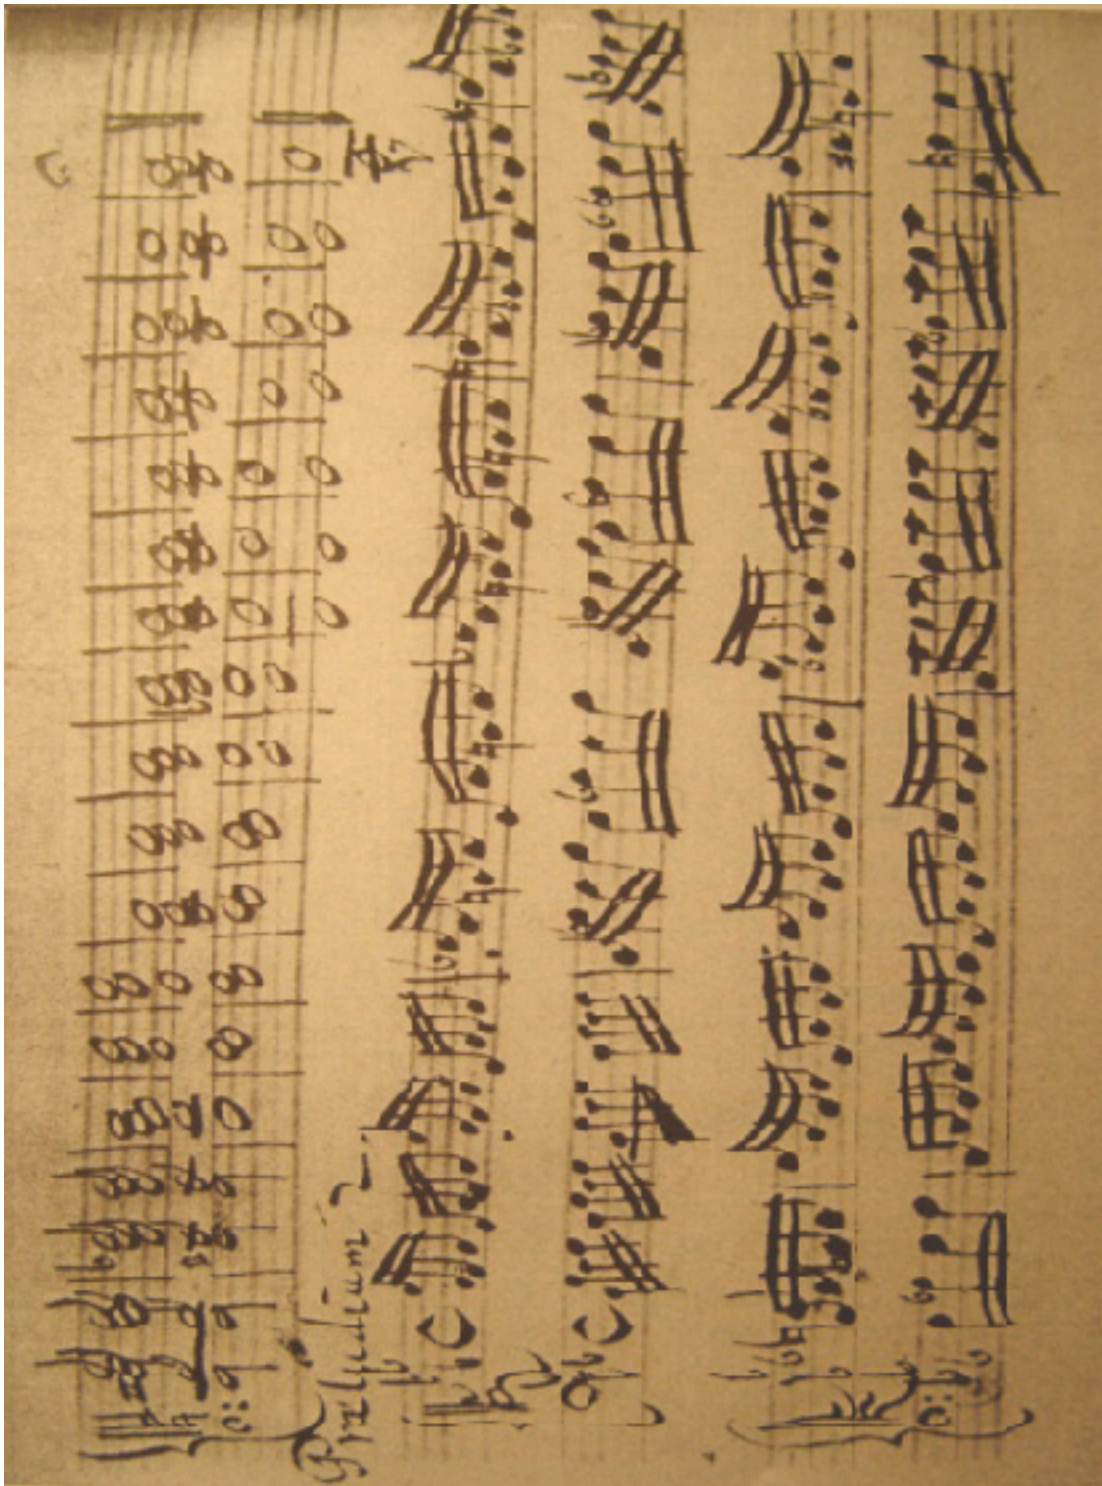 Præludium 2.